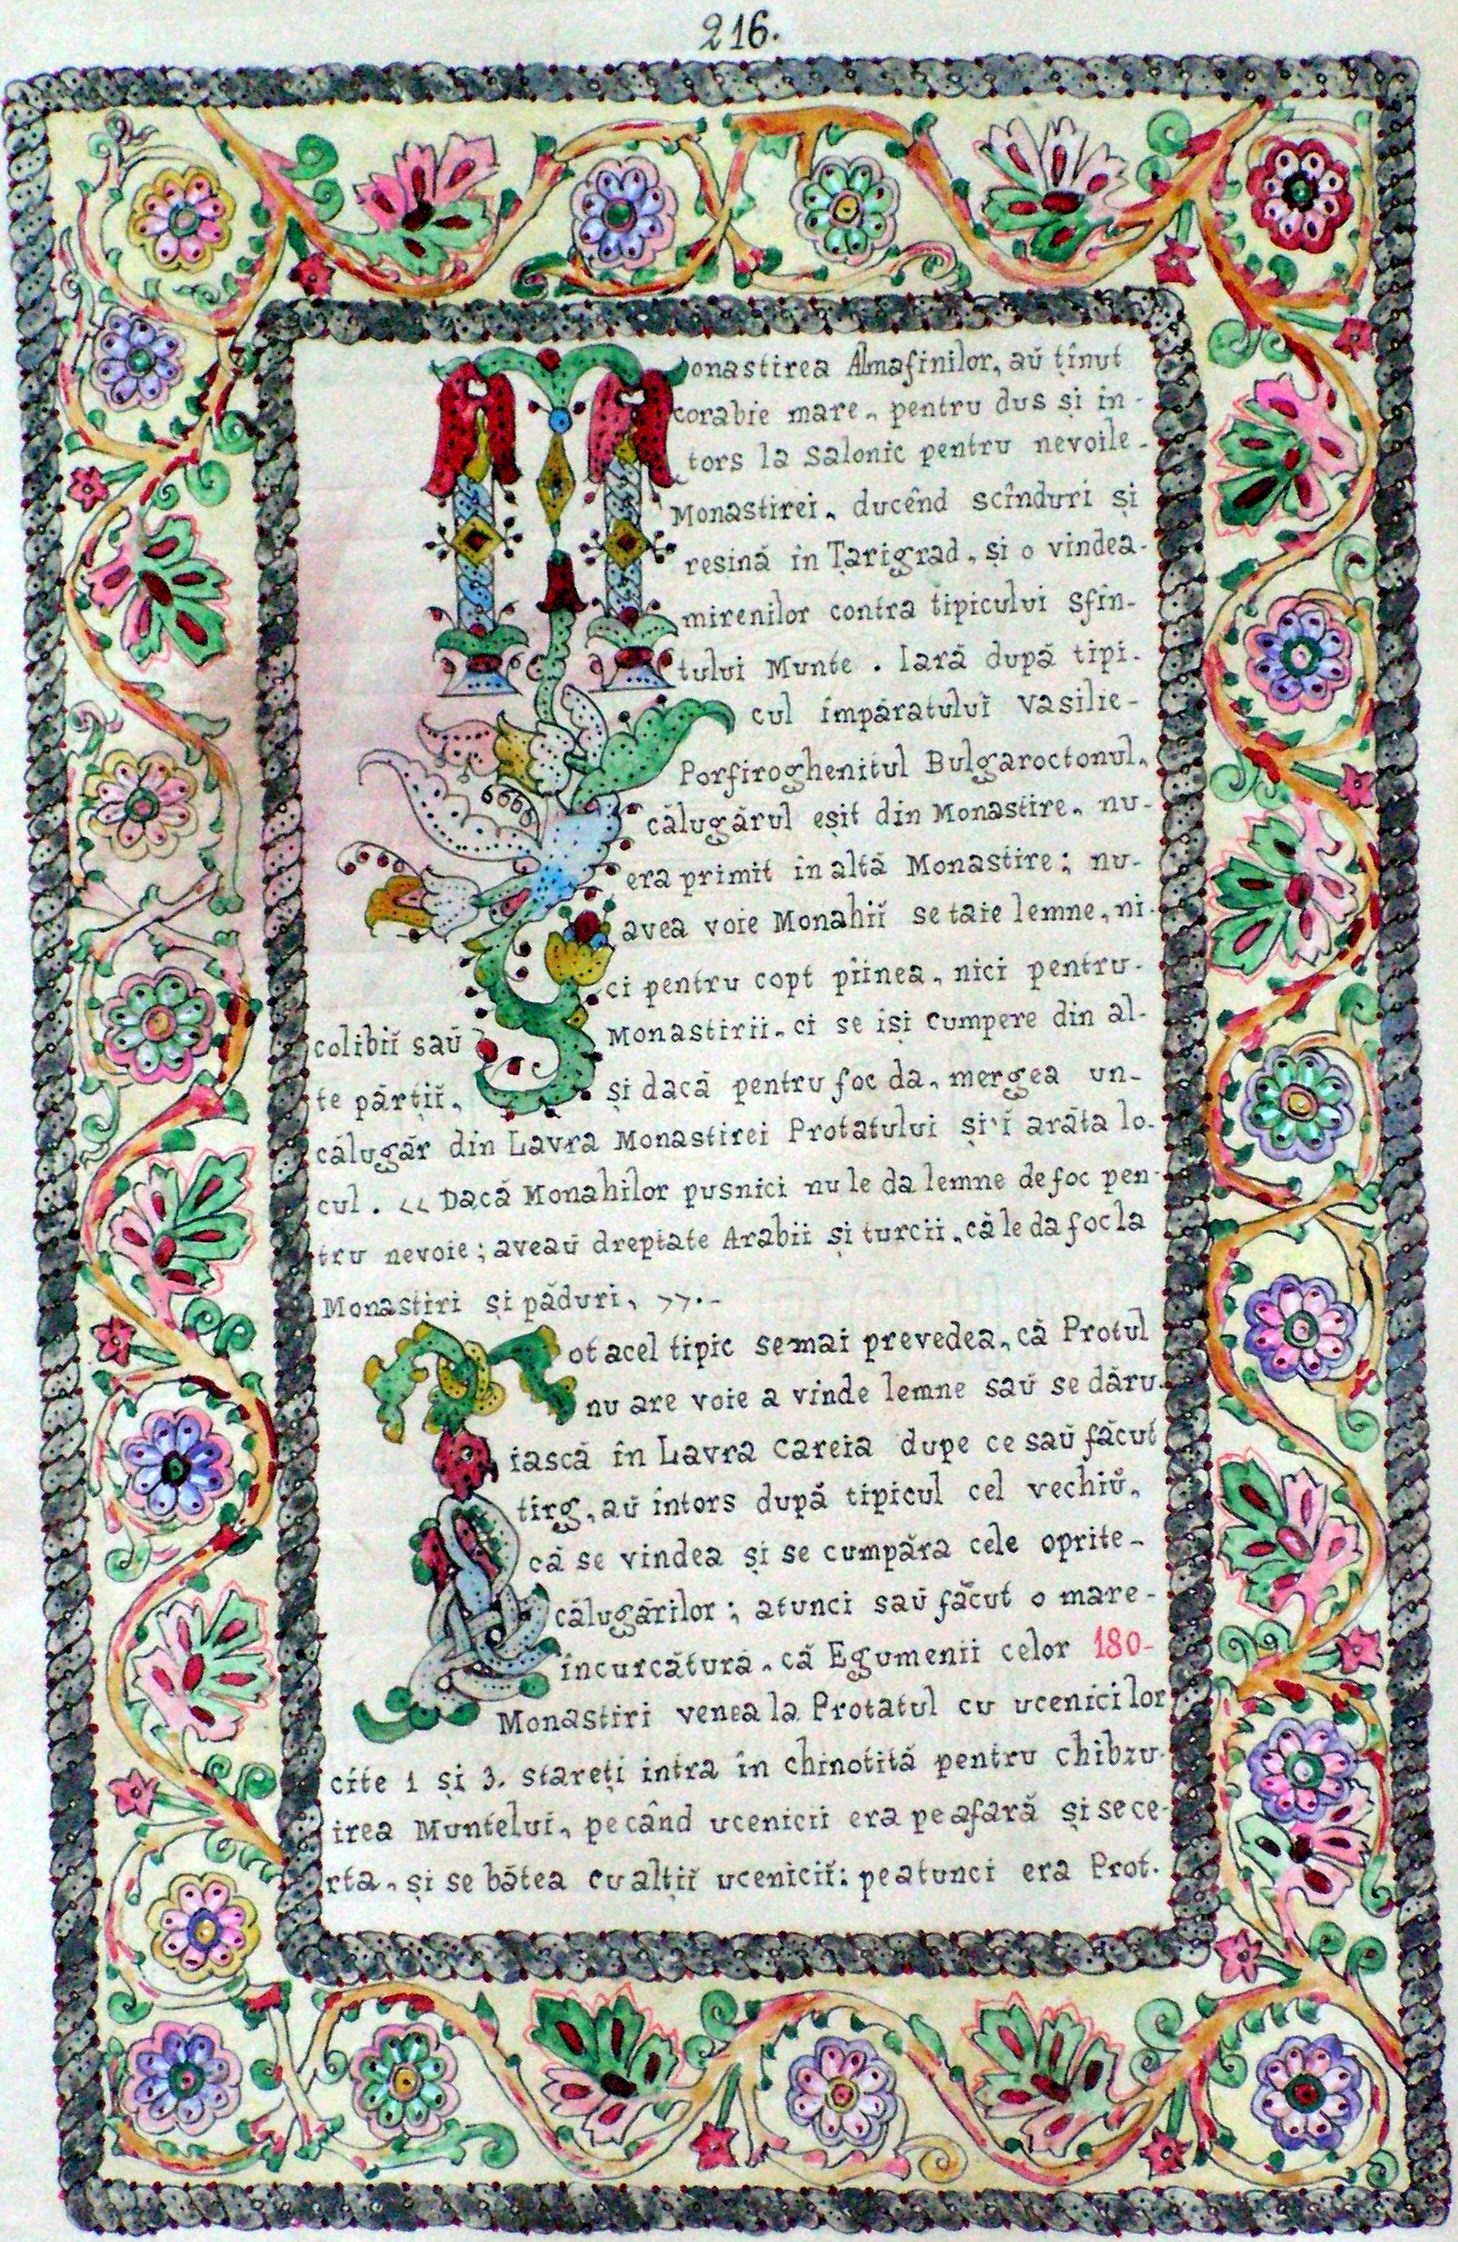 216.
Monastirea Almafinilor, aŭ ținut
corabie mare, pentru dus și in-
tors la Salonic pentru nevoile-
Monastirei, ducênd scînduri și
resină în Țarigrad, și o vindea-
mirenilor contra tipicului Sfin-
tului Munte. Iară după tipi-
cul împăratuluĭ Vasilie-
Porfiroghenitul Bulgaroctonul,
călugărul eșit din Monastire, nu-
era primit în altă Monastire; nu-
avea voie Monahiĭ se taie lemne, ni-
ci pentru copt pîinea, nici pentru-
colibiĭ saŭ Monastirii, ci se își cumpere din al-
te părțiĭ, și dacă pentru foc da, mergea un-
călugăr din Lavra Monastirei Protatului și'ĭ arăta lo-
cul. << Dacă Monahilor pusnici nu le da lemne de foc pen-
tru nevoie; aveaŭ dreptate Arabii și turcii, că le da foc la
Monastiri și păduri, >>.-
Tot acel tipic se mai prevedea, că Protul
nu are voie a vinde lemne saŭ se dăru-
iască în Lavra Careia dupe ce saŭ făcut
tirg, aŭ întors după tipicul cel vechiŭ,
că se vindea și se cumpăra cele oprite-
călugărilor; atunci saŭ făcut o mare-
încurcătură, că Egumenii celor 180-
Monastiri venea la Protatul cu ucenici lor
cîte 1 și 3. stareți intra în chinotită pentru chibzu-
irea Muntelui, pe când ucenicii era pe afară și se ce-
rta, și se bătea cu alțiĭ uceniciĭ: pe atunci era Prot.